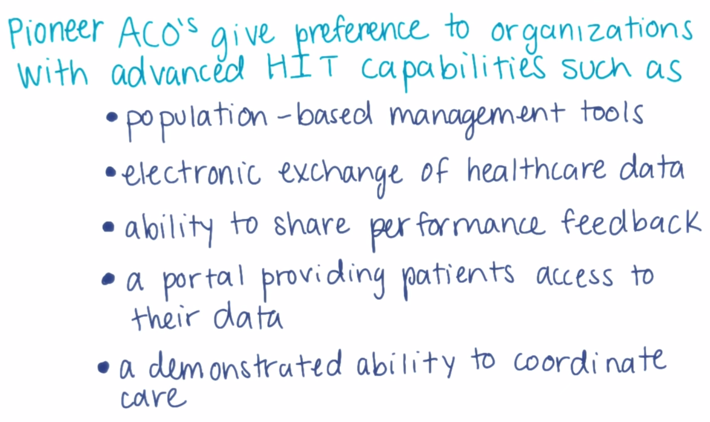 Pioneer ACO's give preference to organizations
with advanced HIT capabilities such as
• population-based management tools
• electronic exchange of healthcare data
• ability to share performance feedback
• a portal providing patients access to
their data
• a demonstrated ability to coordinate
care